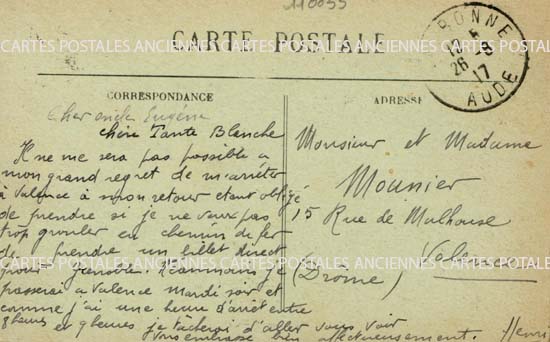 110055
CARTE POSTALE
CORRESPONDANCE
ADRESSE
CARTES POSTALES ANCIENNES CARTES POSTALES ANCIENNES CARTES POSTALES
AUDE
26
17
Cher oncle Eugène
chère Tante Blanche
Il ne me sera pas possible à
mon grand regret de m'arrêter
à Valence à mon retour étant obligé
de prendre si je ne veux pas
trop en chemin de fer
de prendre un billet direct
pour Grenoble. Néanmoins je
passerai à Valence Mardi soir et
comme j'ai une heure d'arrêt entre
8 heures et 9 heures je tâcherai d'aller vous voir
vous embrasse bien affectueusement. Henri
Monsieur et Madame
Mounier
15 Rue de Mulhouse
Valence
(Drôme)